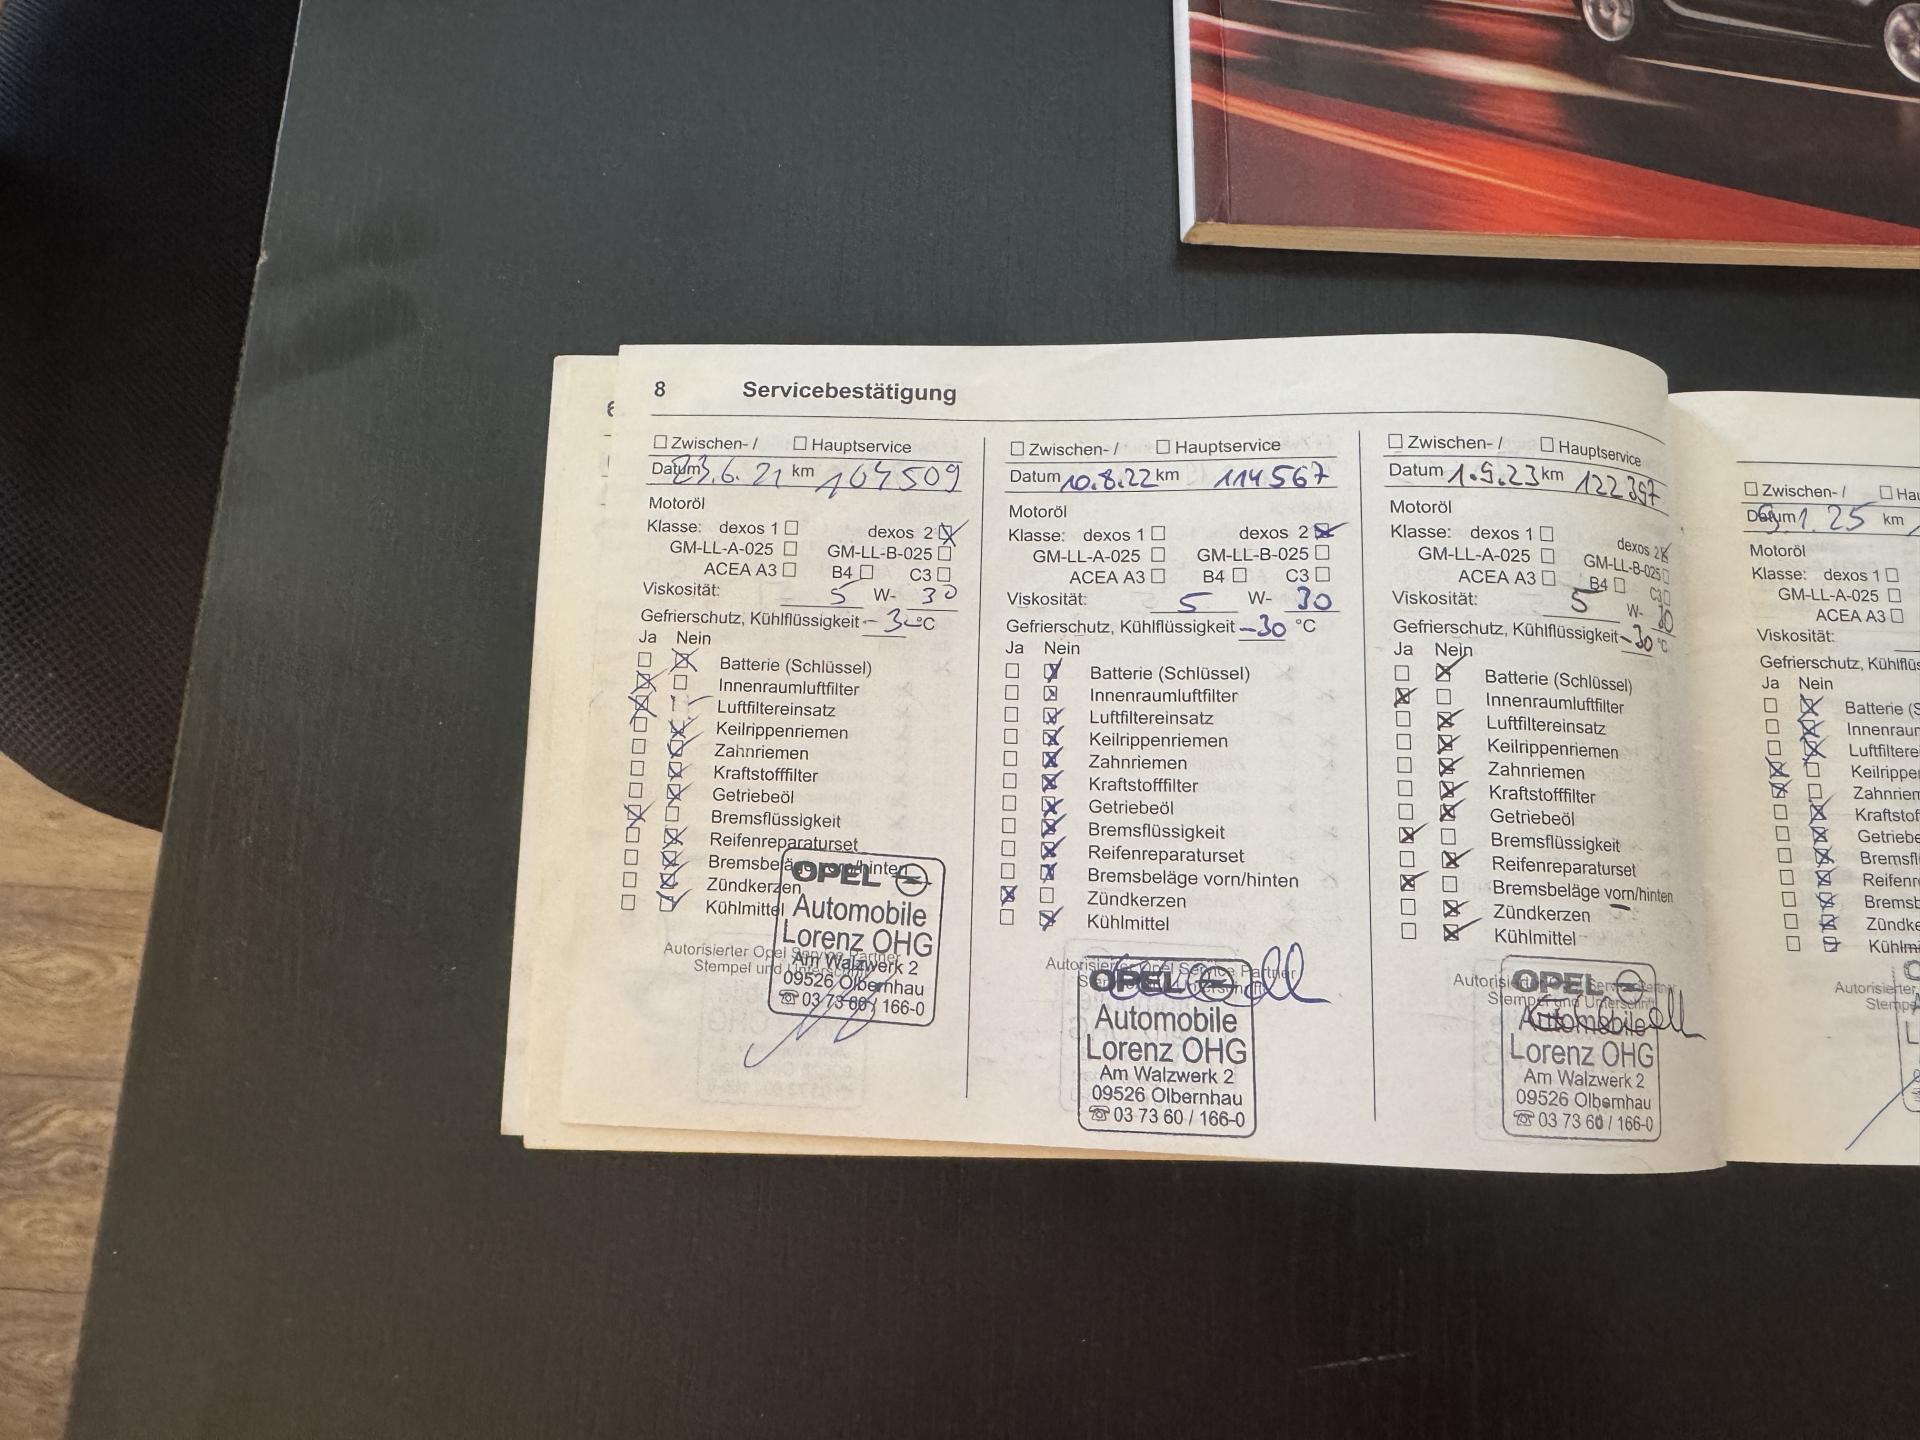 8 Servicebestätigung
☐ Zwischen- / ☐ Hauptservice
Datum 23.6.21 km 104509
Motoröl
Klasse: dexos 1 ☐ dexos 2 ☒
GM-LL-A-025 ☐ GM-LL-B-025 ☐
ACEA A3 ☐ B4 ☐ C3 ☐
Viskosität: 5 W- 30
Gefrierschutz, Kühlflüssigkeit -30 °C
Ja Nein
☐ ☒ Batterie (Schlüssel)
☒ ☐ Innenraumluftfilter
☒ ☐ Luftfiltereinsatz
☐ ☒ Keilrippenriemen
☐ ☒ Zahnriemen
☐ ☒ Kraftstofffilter
☐ ☒ Getriebeöl
☒ ☐ Bremsflüssigkeit
☐ ☒ Reifenreparaturset
☐ ☒ Bremsbeläge vorn/hinten
☐ ☒ Zündkerzen
☐ ☒ Kühlmittel
Autorisierter Opel Service Partner
Stempel und Unterschrift
OPEL
Automobile
Lorenz OHG
Am Walzwerk 2
09526 Olbernhau
☏ 03 73 60 / 166-0
☐ Zwischen- / ☐ Hauptservice
Datum 10.8.22 km 114567
Motoröl
Klasse: dexos 1 ☐ dexos 2 ☒
GM-LL-A-025 ☐ GM-LL-B-025 ☐
ACEA A3 ☐ B4 ☐ C3 ☐
Viskosität: 5 W- 30
Gefrierschutz, Kühlflüssigkeit -30 °C
Ja Nein
☐ ☒ Batterie (Schlüssel)
☐ ☒ Innenraumluftfilter
☐ ☒ Luftfiltereinsatz
☐ ☒ Keilrippenriemen
☐ ☒ Zahnriemen
☐ ☒ Kraftstofffilter
☐ ☒ Getriebeöl
☐ ☒ Bremsflüssigkeit
☐ ☒ Reifenreparaturset
☐ ☒ Bremsbeläge vorn/hinten
☒ ☐ Zündkerzen
☐ ☒ Kühlmittel
Autorisierter Opel Service Partner
Stempel und Unterschrift
OPEL
Automobile
Lorenz OHG
Am Walzwerk 2
09526 Olbernhau
☏ 03 73 60 / 166-0
☐ Zwischen- / ☐ Hauptservice
Datum 1.9.23 km 122397
Motoröl
Klasse: dexos 1 ☐ dexos 2 ☒
GM-LL-A-025 ☐ GM-LL-B-025 ☐
ACEA A3 ☐ B4 ☐ C3 ☐
Viskosität: 5 W- 30
Gefrierschutz, Kühlflüssigkeit -30 °C
Ja Nein
☐ ☒ Batterie (Schlüssel)
☒ ☐ Innenraumluftfilter
☐ ☒ Luftfiltereinsatz
☐ ☒ Keilrippenriemen
☐ ☒ Zahnriemen
☐ ☒ Kraftstofffilter
☐ ☒ Getriebeöl
☒ ☐ Bremsflüssigkeit
☐ ☒ Reifenreparaturset
☒ ☐ Bremsbeläge vorn/hinten
☐ ☒ Zündkerzen
☐ ☒ Kühlmittel
Autorisierter Opel Service Partner
Stempel und Unterschrift
OPEL
Automobile
Lorenz OHG
Am Walzwerk 2
09526 Olbernhau
☏ 03 73 60 / 166-0
☐ Zwischen- / ☐ Hau
Datum 1.25 km
Motoröl
Klasse: dexos 1 ☐
GM-LL-A-025 ☐
ACEA A3 ☐
Viskosität:
Gefrierschutz, Kühlflüs
Ja Nein
☐ ☒ Batterie (S
☐ ☒ Innenraum
☐ ☒ Luftfilterei
☒ ☐ Keilrippe
☒ ☐ Zahnriem
☐ ☒ Kraftstof
☐ ☒ Getriebe
☐ ☒ Bremsfl
☐ ☒ Reifenre
☐ ☒ Bremsb
☐ ☒ Zündke
☐ ☒ Kühlmi
Autorisierter
Stemp